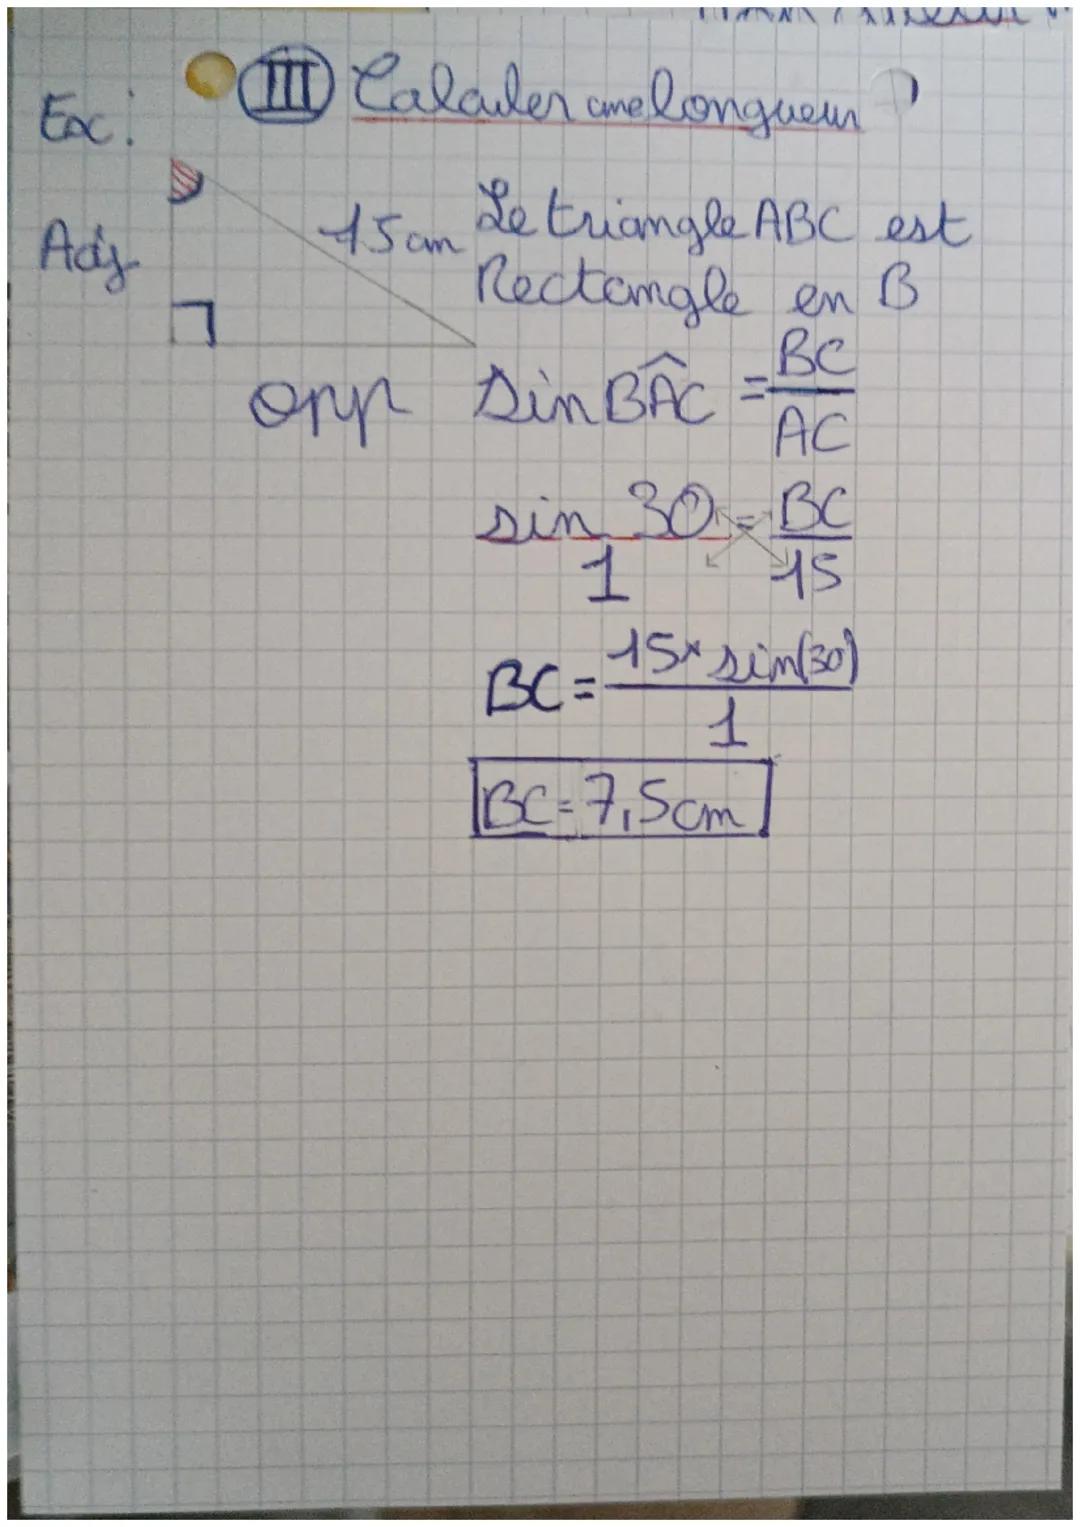 III Calculer une longueur
Ex:
Adj
15 cm
Opp
Le triangle ABC est
Rectangle en B
Sin BÂC = BC/AC
sin 30/1 = BC/15
BC = 15 × sin(30)/1
BC = 7,5 cm